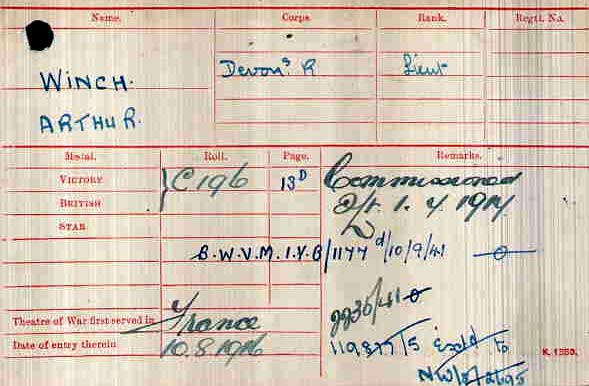 Name. Corps. Rank. Regtl. No.
WINCH. Devon. R Lieut
ARTHUR.
Medal. Roll. Page. Remarks.
VICTORY C196 13D Commissioned
BRITISH 1. 4. 1917
STAR
B.W.V.M. I.V.B/1177 d/10/9/41
2235/41
Theatre of War first served in France
Date of entry therein 10.8.1916 119877/5 to
K. 1380.